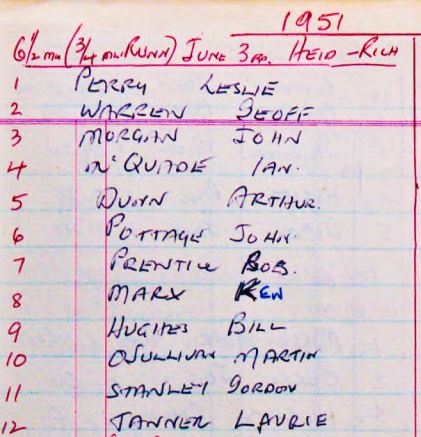 1951
6½ mu (¾ mu. RUNN) JUNE 3RD. HEID - RICH
1 PERRY LESLIE
2 WARREN GEOFF
3 MORGAN JOHN
4 Mc QUADE IAN.
5 DUNN ARTHUR.
6 POTTAGE JOHN.
7 PRENTICE BOB.
8 MARX KEN
9 HUGHES BILL
10 OSULLIVAN MARTIN
11 STANLEY GORDON
12 TANNER LAURIE